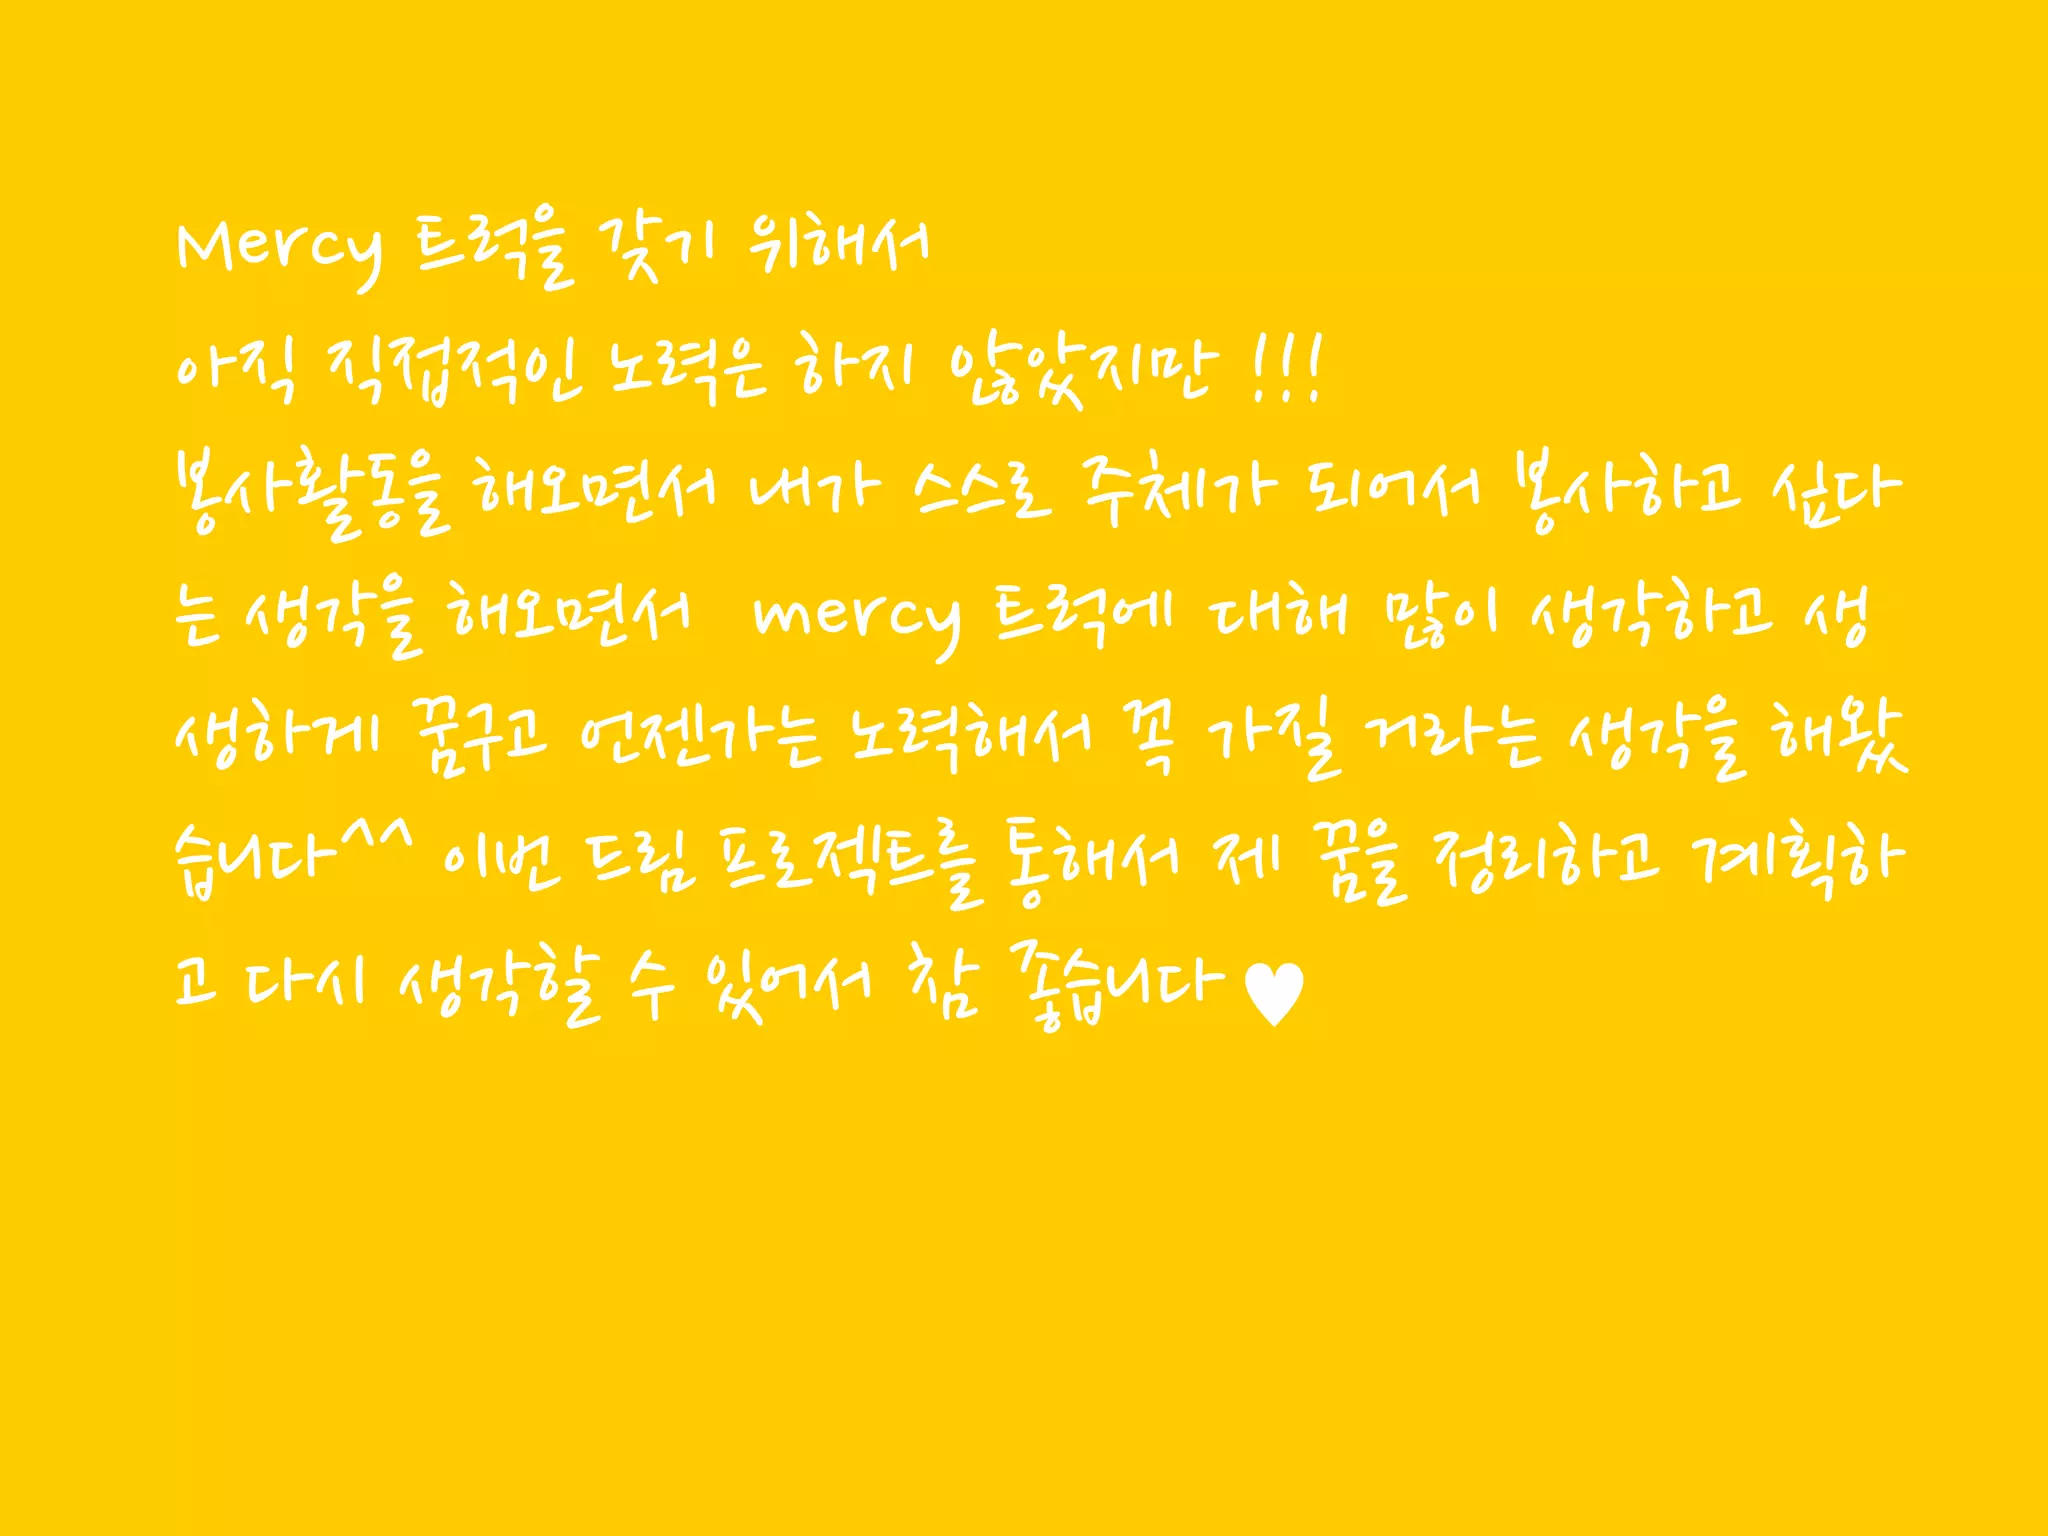 Mercy 트럭을 갖기 위해서
아직 직접적인 노력은 하지 않았지만 !!!
봉사활동을 해오면서 내가 스스로 주체가 되어서 봉사하고 싶다
는 생각을 해오면서  mercy 트럭에 대해 많이 생각하고 생
생하게 꿈꾸고 언젠가는 노력해서 꼭 가질 거라는 생각을 해왔
습니다^^ 이번 드림 프로젝트를 통해서 제 꿈을 정리하고 계획하
고 다시 생각할 수 있어서 참 좋습니다♥